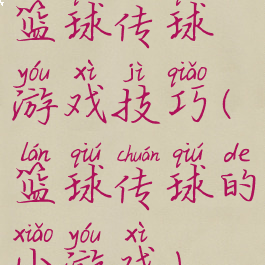 篮球传球
yóu xì jì qiǎo
游戏技巧(
lán qiú chuán qiú de
篮球传球的
xiǎo yóu xì
小游戏)